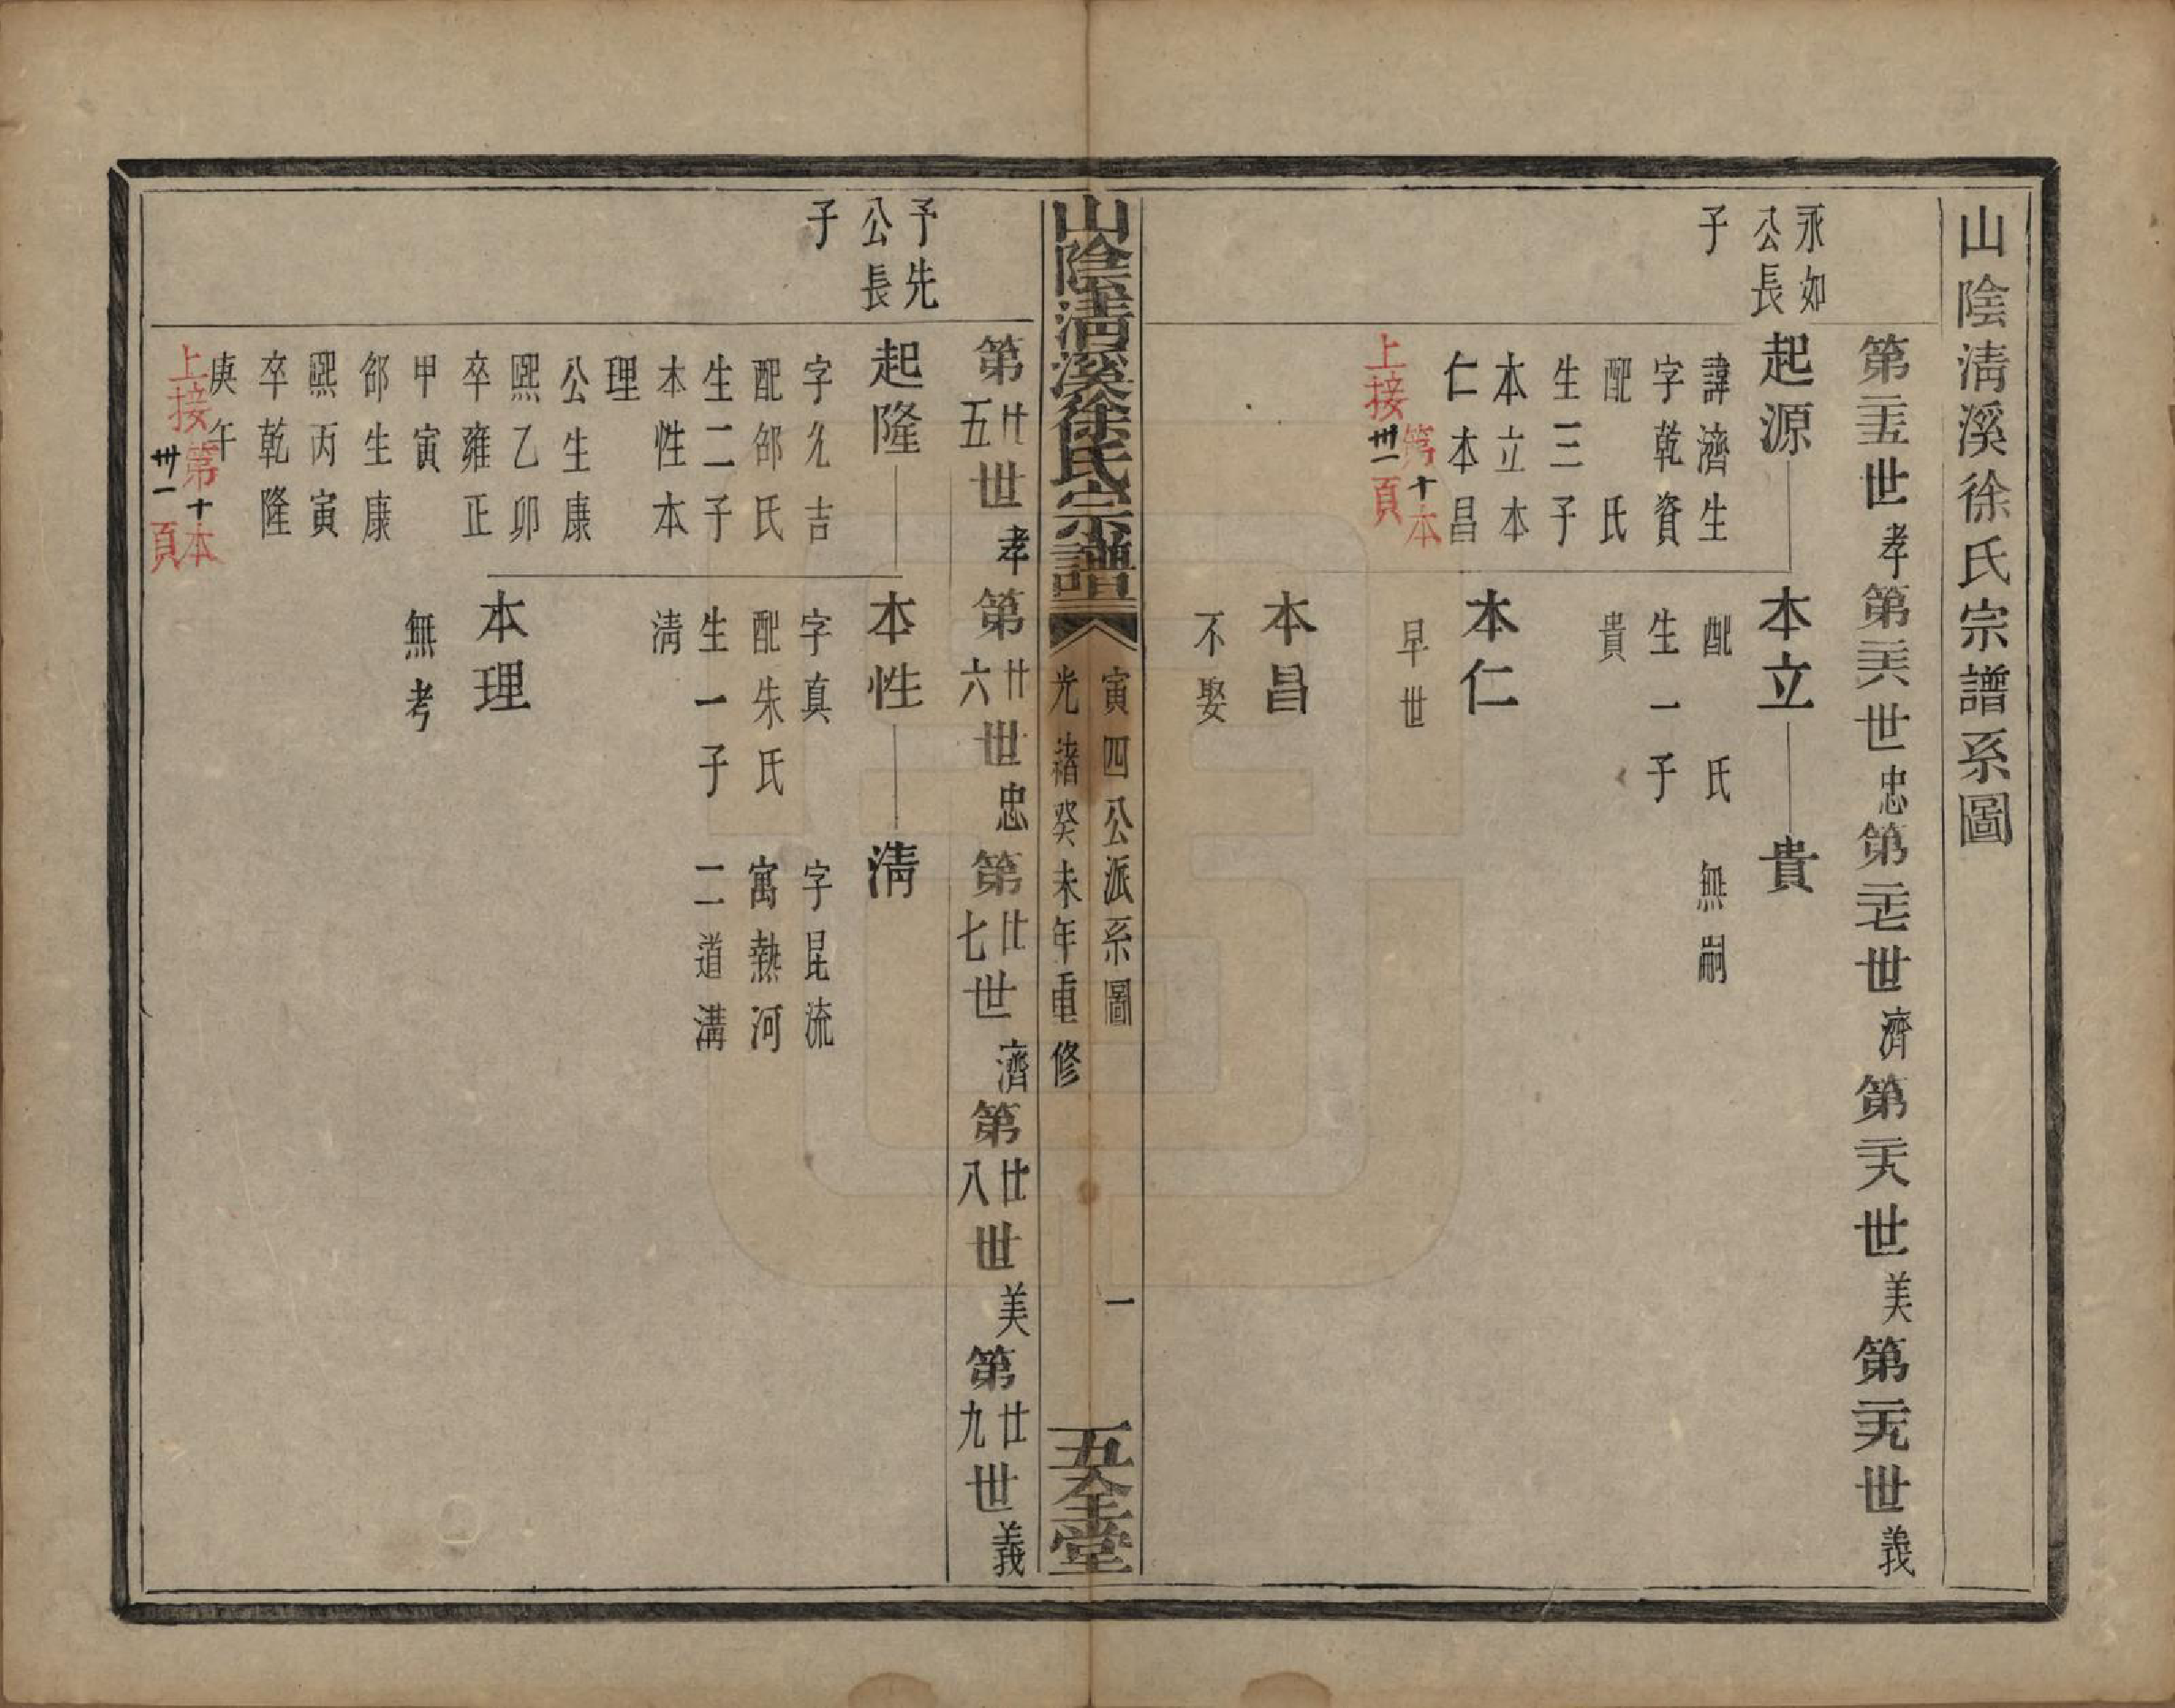 山陰淸溪徐氏宗譜系圖
第二十五世孝第二十六世忠第二十七世濟第二十八世美第二十九世義
永如
公長
子
起源
諱濟生
字乾資
配　氏
生三子
本立本
仁本昌
上接第十本
卅一頁
本立
配　氏
生一子
貴
貴
無嗣
本仁
早世
本昌
不娶
山陰淸溪徐氏宗譜
寅四公派系圖
光緒癸未年重修
一
五全堂
第廿五世孝第廿六世忠第廿七世濟第廿八世美第廿九世義
予先
公長
子
起隆
字允吉
配邰氏
生二子
本性本
理
公生康
熙乙卯
卒雍正
甲寅
邰生康
熙丙寅
卒乾隆
庚午
上接第十本
卅一頁
本性
字真
配朱氏
生一子
淸
淸
字昆流
寓熱河
二道溝
本理
無考